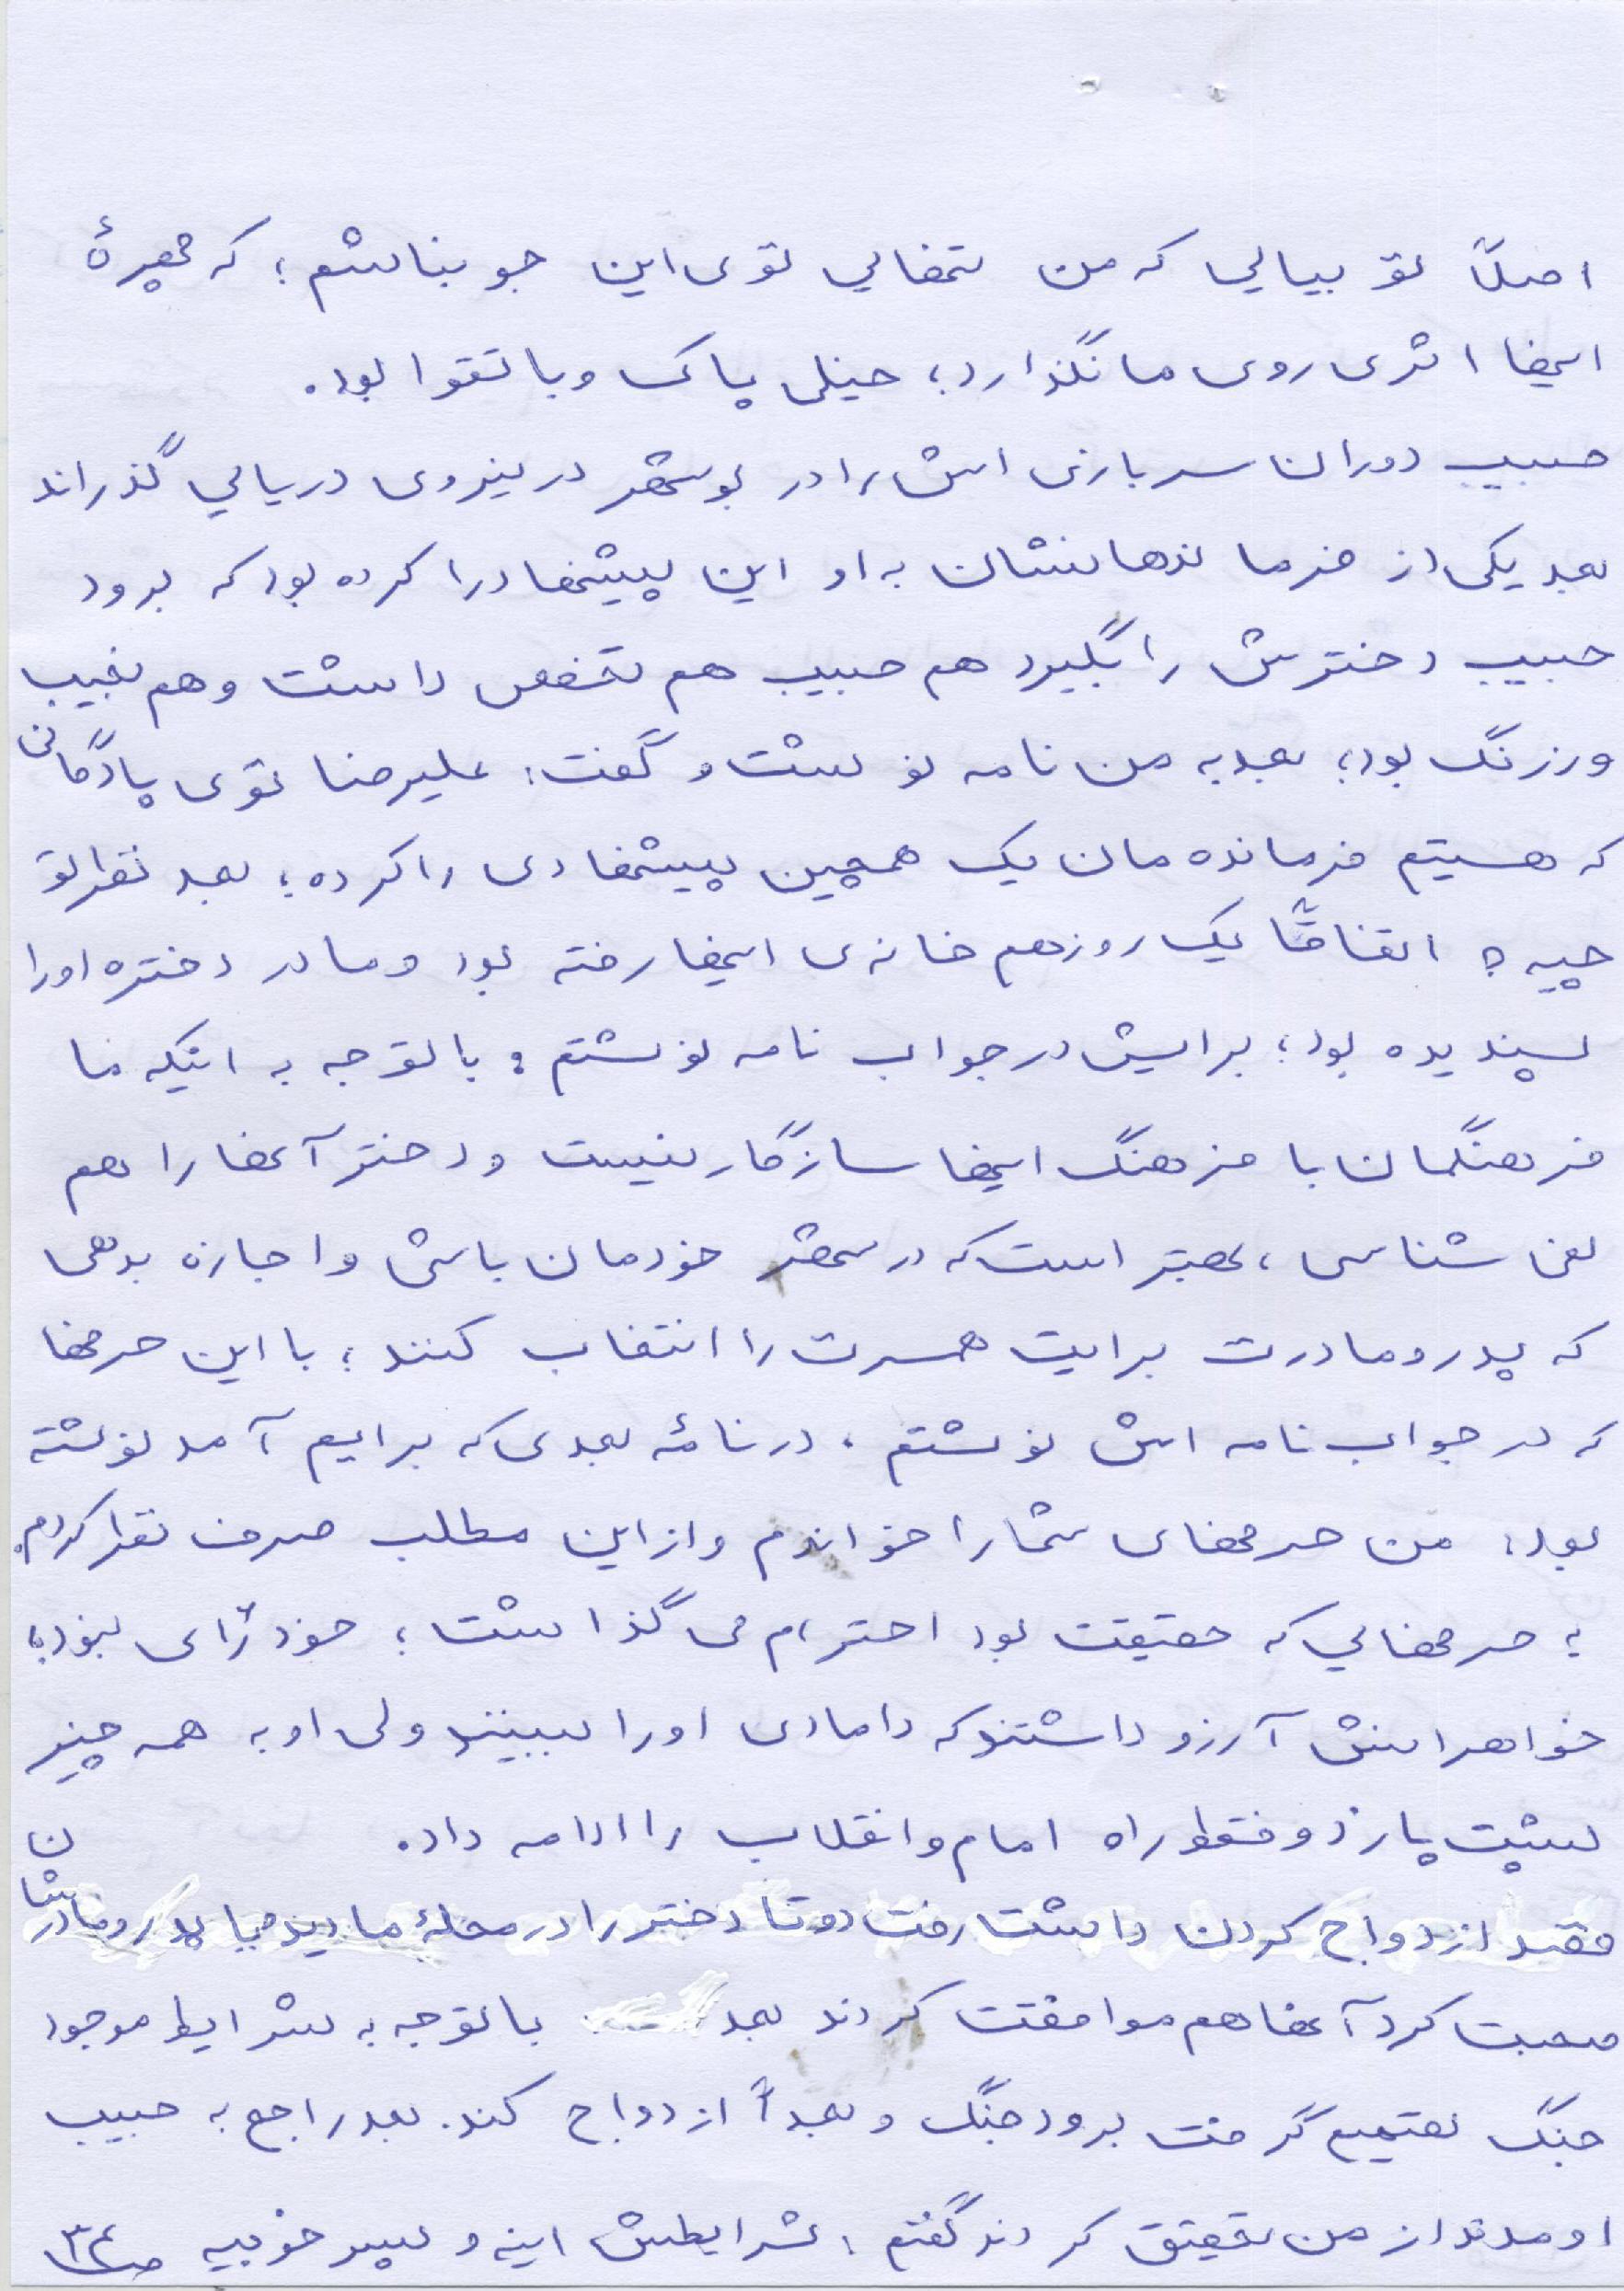 اصلاً تو بیایی که من تنهایی توی این جو نباشم؛ که چهرهٔ
اینها اثری روی ما نگذارد؛ خیلی پاک و با تقوا بود.
حبیب دوران سربازی اش را در بوشهر در نیروی دریایی گذراند
بعد یکی از فرماندهانشان به او این پیشنهاد را کرده بود که برود
حبیب دخترش را بگیرد هم حبیب هم تخصص داشت و هم نجیب
و زرنگ بود؛ بعد به من نامه نوشت و گفت: علیرضا توی پادگانی
که هستیم فرمانده مان یک همچین پیشنهادی را کرده؛ بعد نظر تو
چیه؟ اتفاقاً یک روز هم خانه ی اینها رفته بود و مادر دختره او را
پسندیده بود؛ برایش در جواب نامه نوشتم: با توجه به اینکه ما
فرهنگمان با فرهنگ اینها سازگار نیست و دختر آنها را هم
نمی شناسی، بهتر است که در شهر خودمان باشی و اجازه بدهی
که پدر و مادرت برایت همسرت را انتخاب کنند؛ با این حرفها
که در جواب نامه اش نوشتم، در نامهٔ بعدی که برایم آمد نوشته
بود: من حرفهای شما را خواندم و از این مطلب صرف نظر کردم.
به حرفهایی که حقیقت بود احترام می گذاشت؛ خود رأی نبود؛
خواهرانش آرزو داشتند که دامادی او را ببینند ولی او به همه چیز
پشت پا زد و فقط راه امام و انقلاب را ادامه داد.
قصد ازدواج کردن داشت رفت دو تا دختر را در محلهٔ ما دید با پدر و مادرشان
صحبت کرد آنها هم موافقت کردند بعد با توجه به شرایط موجود
جنگ تصمیم گرفت برود جنگ و بعداً ازدواج کند. بعد راجع به حبیب
اومدند از من تحقیق کردند گفتم: شرایطش اینه و پسر خوبیه ص۳۴